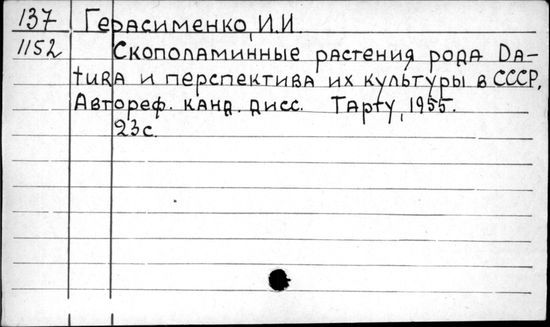 137 Герасименко, И.И.
1152 Скополаминные растения рода Da-
tura и перспектива их культуры в СССР.
Автореф. канд. дисс. Тарту, 1955.
23с.